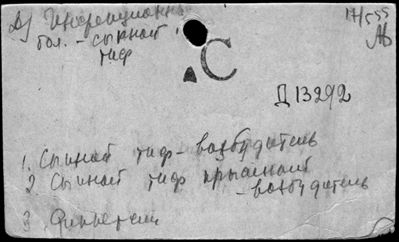 Д) Инфекционн.
бол. - сыпной
тиф
17/555
АВ
С
Д 13292
1. Сыпной тиф - возбудитель
2 Сыпной тиф крысиный
- возбудитель
3.